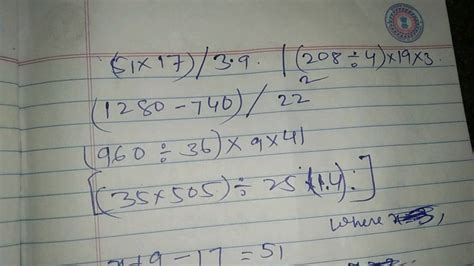 (51×17)/3.9 | (208÷4)×19×3
(1280-740)/22²
(960÷36)×9×41
[(35×505)÷25×(1.4)÷]
where
x+9-17=51